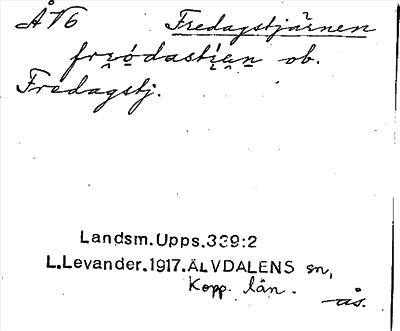 ÅV6 Fredagstjärnen
friǫ́dastịạn ob.
Fredagstj.
Landsm.Upps.339:2
L.Levander.1917.ÄLVDALENS sn,
Kopp. län.
ås.